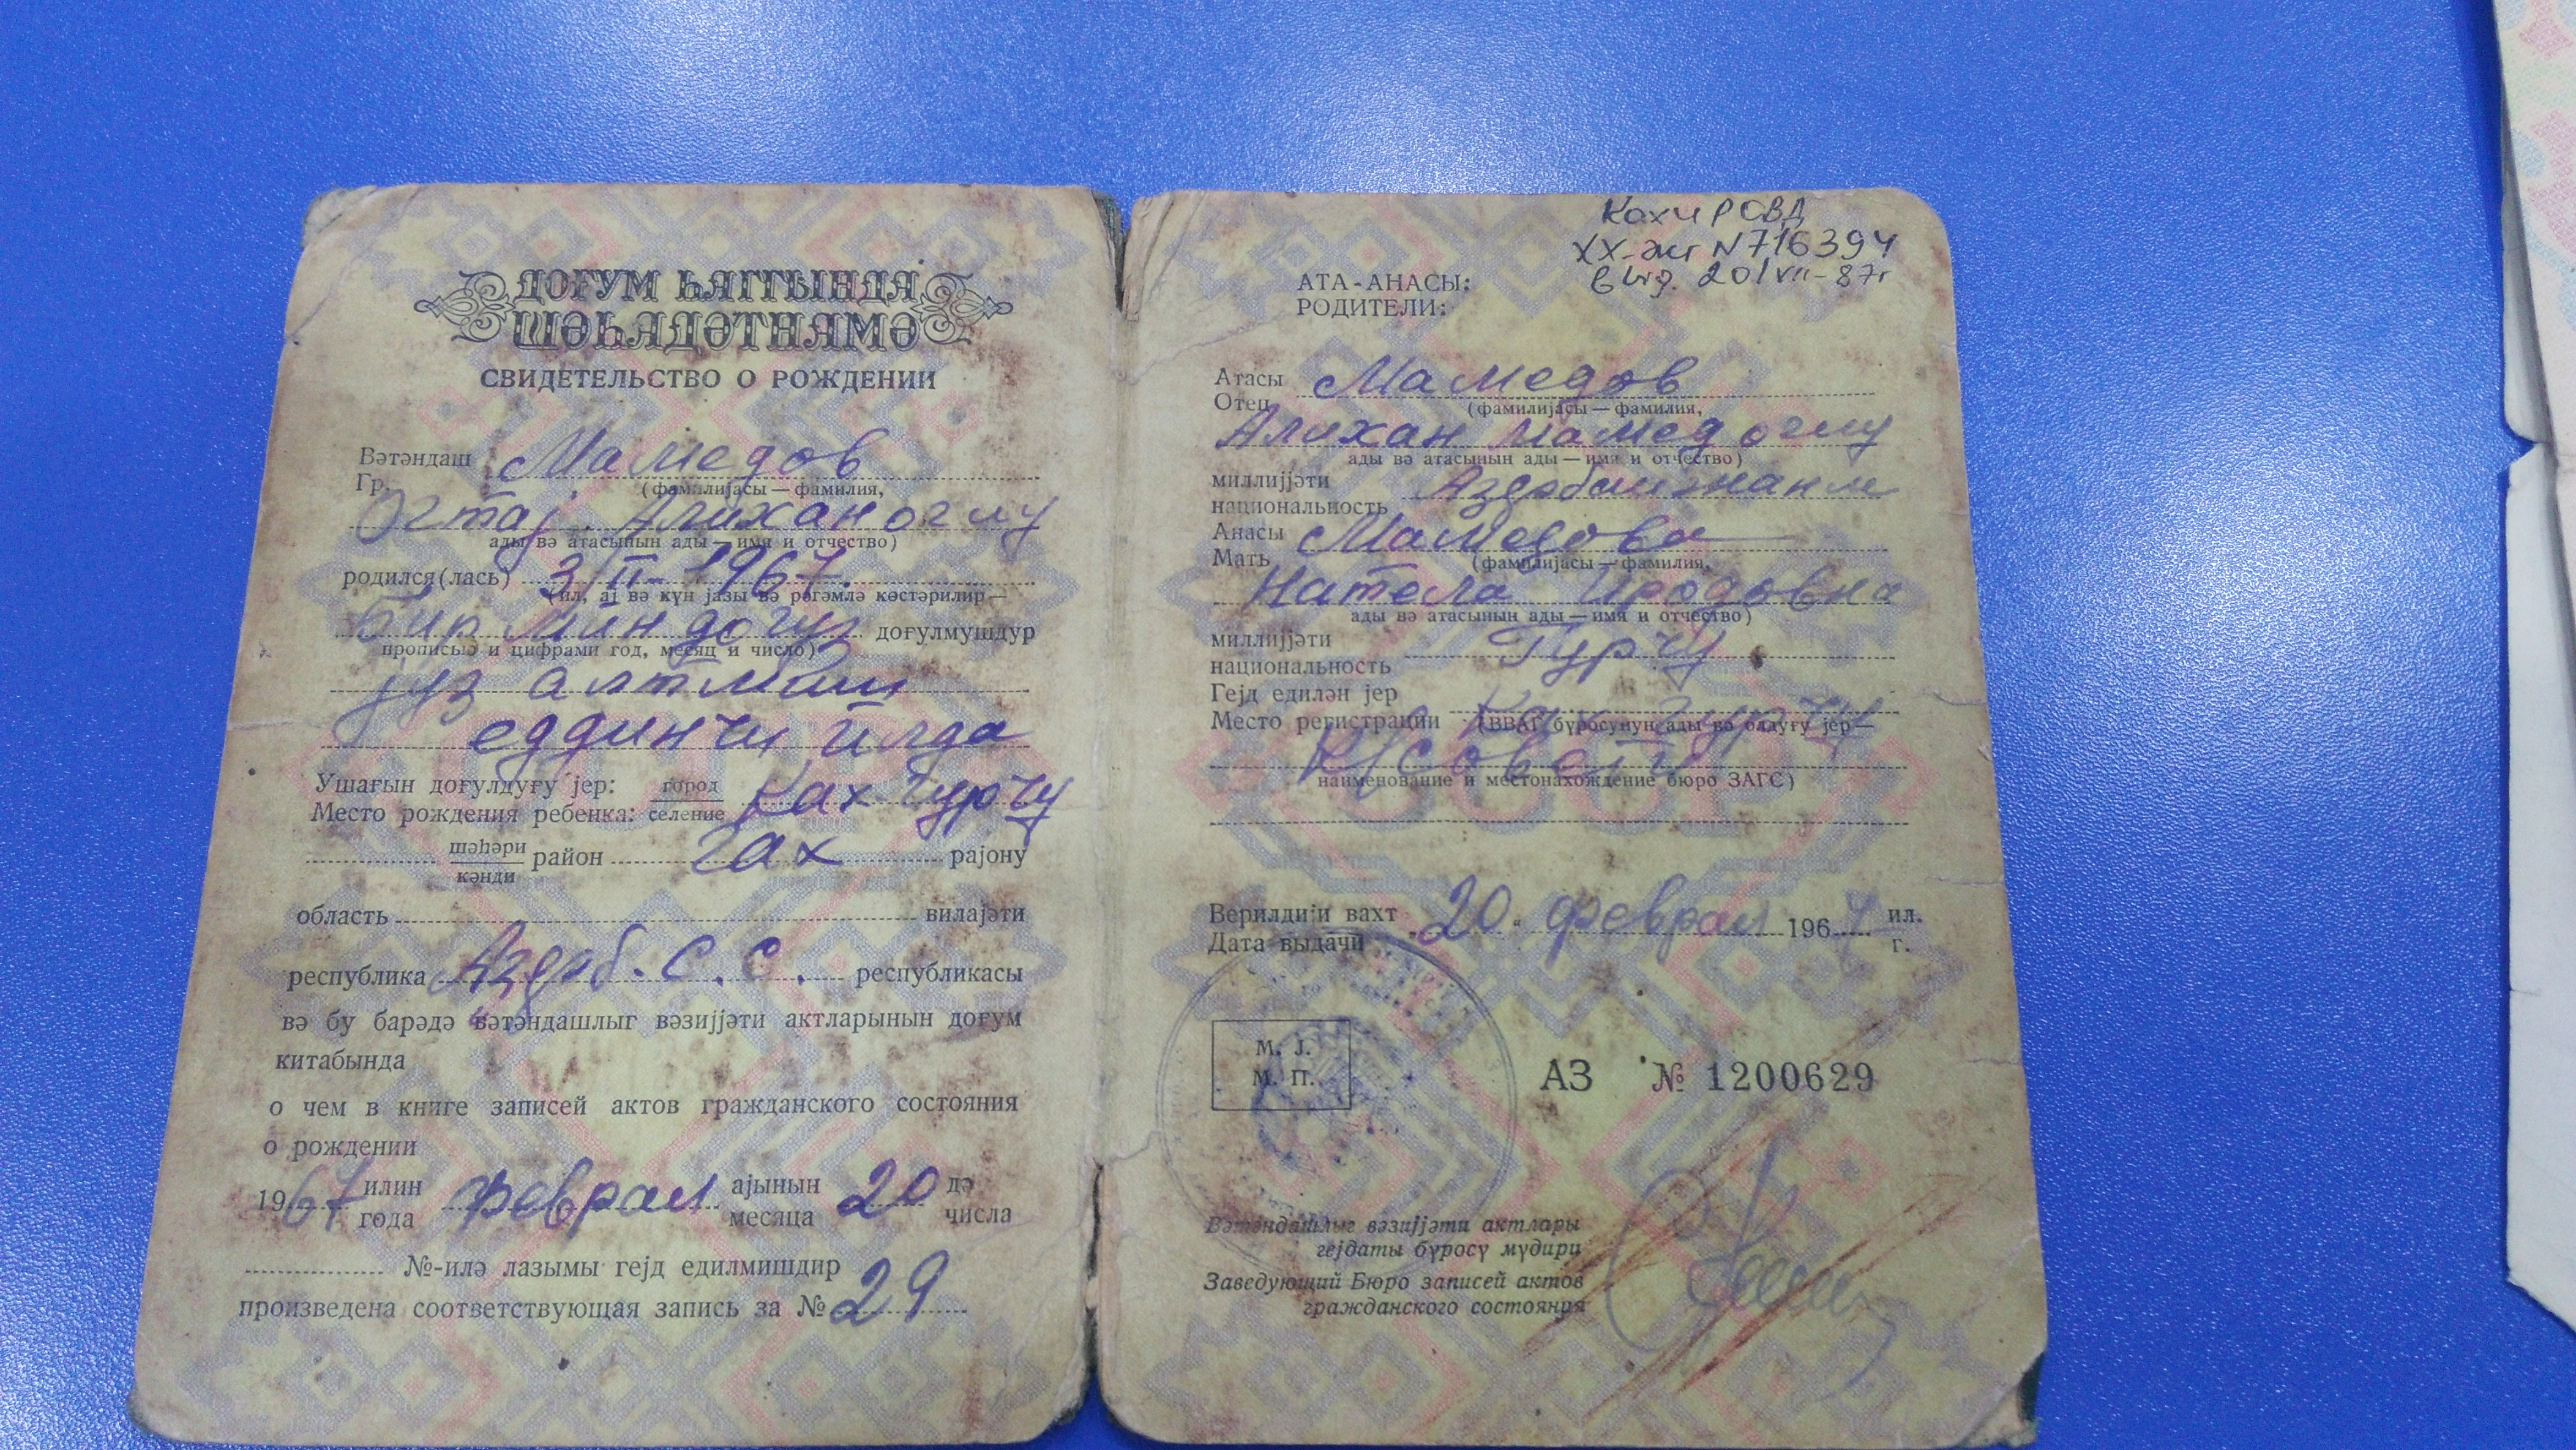 ДОҒУМ ҺАГГЫНДА
ШӘҺАДӘТНАМӘ
СВИДЕТЕЛЬСТВО О РОЖДЕНИИ
Вәтәндаш Мамедов
Гр. (фамилијасы — фамилия,
Огтај. Алихан оглу
ады вә атасынын ады — имя и отчество)
родился(лась) 3/II-1967.
(ил, ај вә күн јазы вә рәгәмлә көстәрилир —
Бир мин догуз доғулмушдур
прописью и цифрами год, месяц и число)
јуз алтмыш
еддинчи илда
Ушағын доғулдуғу јер: город Ках гурчу
Место рождения ребенка: селение
шәһәри район Гах рајону
кәнди
область вилајәти
республика Азәрб. С. С. республикасы
вә бу барәдә вәтәндашлыг вәзијјәти актларынын доғум
китабында
о чем в книге записей актов гражданского состояния
о рождении
1967 илин феврал ајынын 20 дә
года месяца числа
№-илә лазымы гејд едилмишдир
произведена соответствующая запись за № 29
Кахи РОВД
XX-жг N 716394
выд. 20/VII-87г
АТА-АНАСЫ:
РОДИТЕЛИ:
Атасы Мамедов
Отец (фамилијасы — фамилия,
Алихан Мамед оглу
ады вә атасынын ады — имя и отчество)
миллијјәти Азәрбайжанлы
национальность
Анасы Мамедова
Мать (фамилијасы — фамилия,
Натела Иродовна
ады вә атасынын ады — имя и отчество)
миллијјәти Гурчу
национальность
Гејд едилән јер Ках гурчу
Место регистрации (ВВАГ бүросунун ады вә олдуғу јер —
К/совети
наименование и местонахождение бюро ЗАГС)
Верилдији вахт „20“ феврал 1967 ил.
Дата выдачи г.
М. Ј.
М. П.
АЗ № 1200629
Вәтәндашлыг вәзијјәти актлары
гејдаты бүросу мүдири
Заведующий Бюро записей актов
гражданского состояния